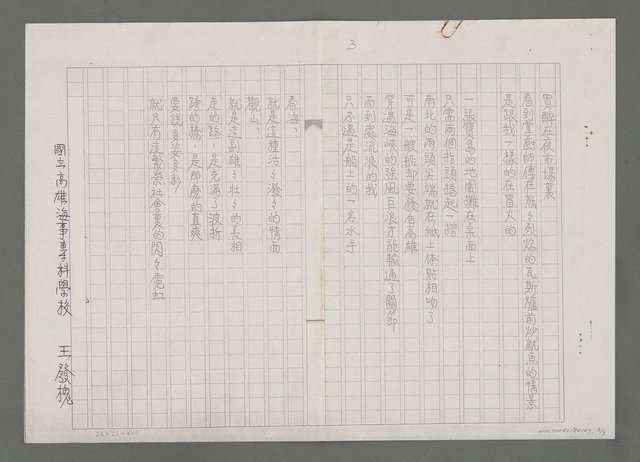 3
買醉在夜市場裏
看到掌廚師傅在熊々烈焰的瓦斯爐前炒魷魚的情景
是跟我一樣的在冒火的
一張寶島的地圖攤在桌面上
只需兩個指頭捲起一摺
南北的兩頭尖端就在紙上体貼相吻了
可是一艘船却要從自高雄
穿過海峽的強風巨浪才能輸通了關節
而到處流浪的我
只不過是船上的一名水手
看海？
就是這種活々潑々的情面
觀山？
就是這副雄々壯々的長相
走的路，是充滿了波折
跨的橋，是那麼的直爽
要說多姿多彩
就只有這繁榮社會裏的閃々霓虹
國立高雄海事專科學校 王發槐
24×25=600